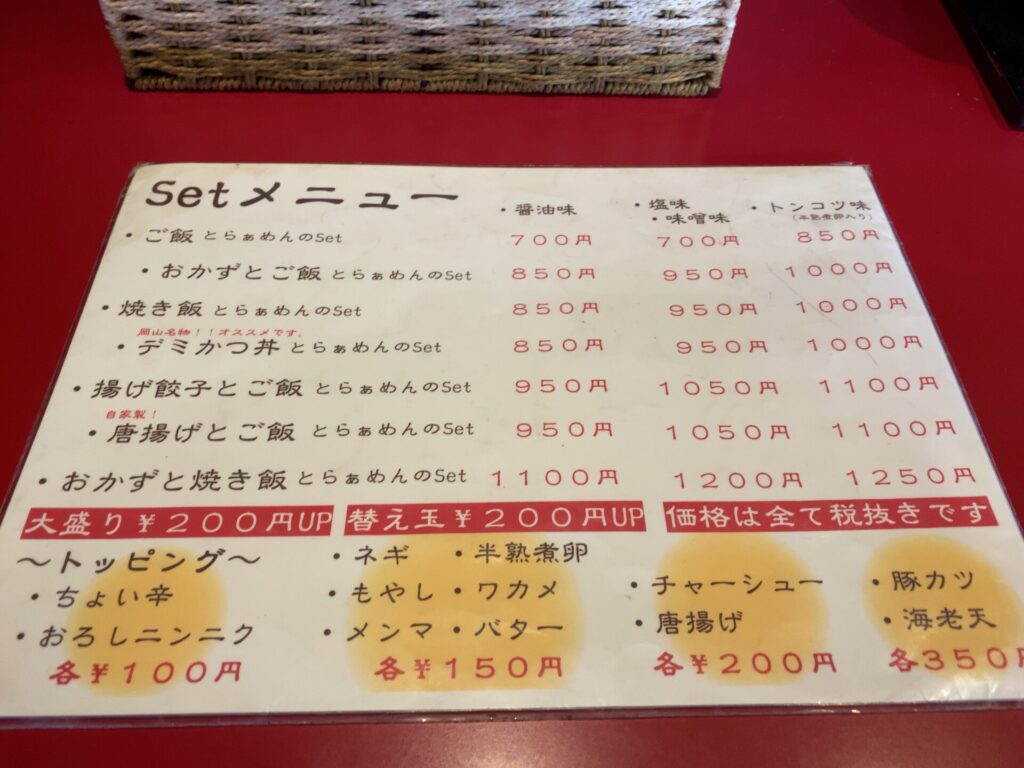 Setメニュー ・醤油味 ・塩味 ・味噌味 ・トンコツ味
(半熟煮卵入り)
・ご飯とらぁめんのSet 700円 700円 850円
・おかずとご飯とらぁめんのSet 850円 950円 1000円
・焼き飯とらぁめんのSet 850円 950円 1000円
岡山名物！！オススメです。
・デミかつ丼とらぁめんのSet 850円 950円 1000円
・揚げ餃子とご飯とらぁめんのSet 950円 1050円 1100円
自家製！
・唐揚げとご飯とらぁめんのSet 950円 1050円 1100円
・おかずと焼き飯とらぁめんのSet 1100円 1200円 1250円
大盛り¥200円UP 替え玉¥200円UP 価格は全て税抜きです
〜トッピング〜
・ちょい辛
・おろしニンニク
各¥100円
・ネギ ・半熟煮卵
・もやし ・ワカメ
・メンマ ・バター
各¥150円
・チャーシュー
・唐揚げ
各¥200円
・豚カツ
・海老天
各350円